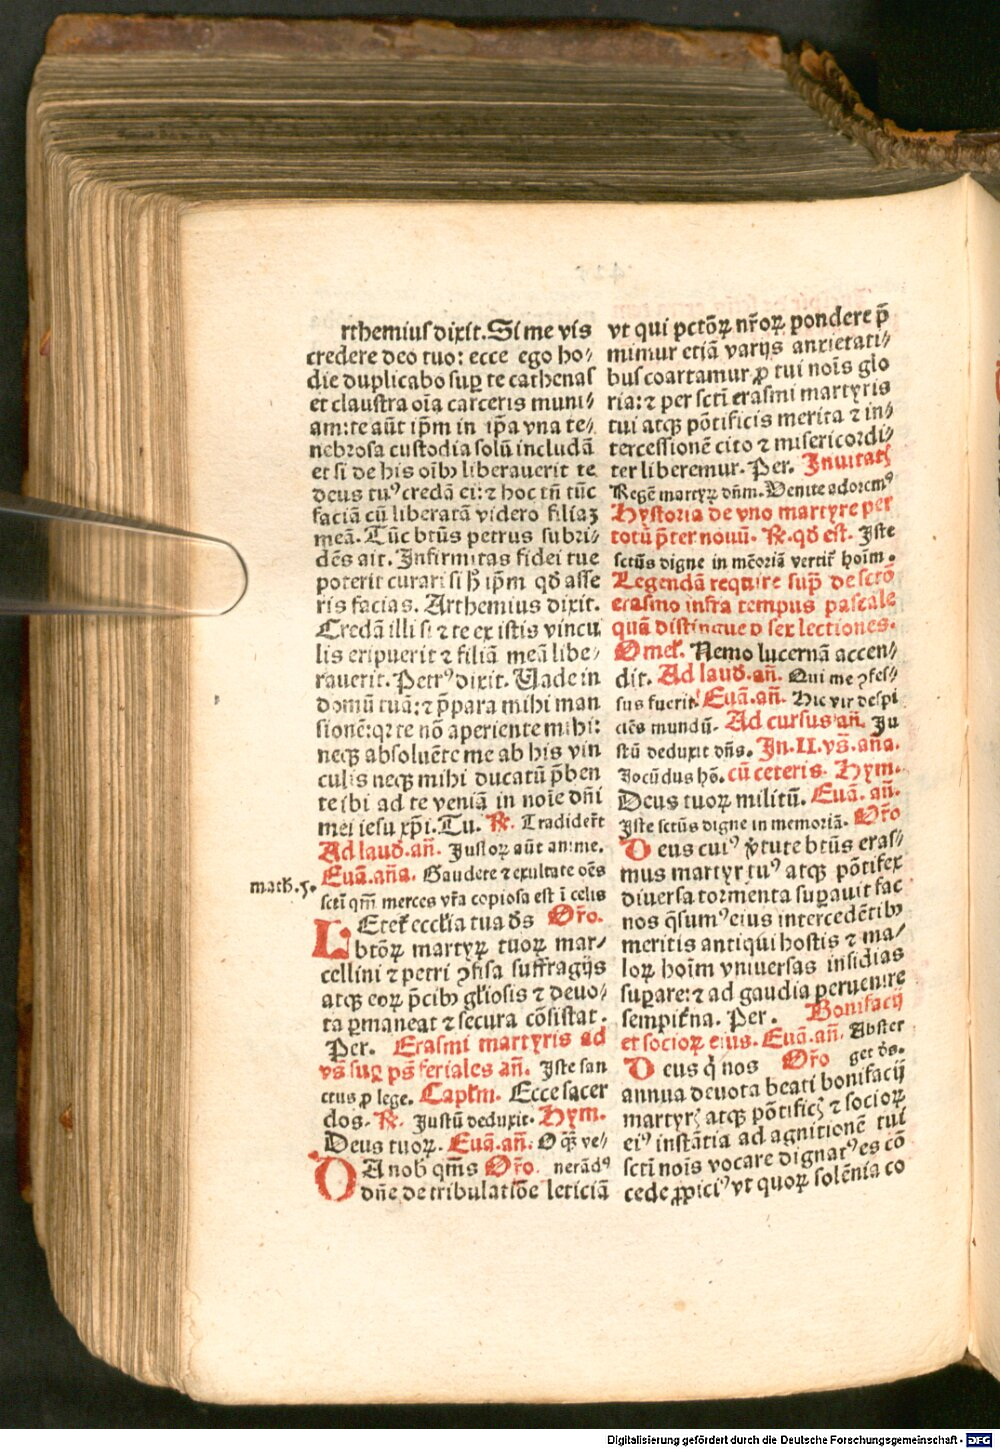 rthemius dixit. Si me vis
credere deo tuo: ecce ego ho⸗
die duplicabo suꝑ te cathenas
et claustra oĩa carceris muni⸗
am: te aũt ip̃m in ip̃a vna te⸗
nebrosa custodia solũ includã
et si de his oĩbꝫ liberauerit te
deus tuꝰ credã ei: ⁊ hoc tñ tũc
faciã cũ liberatã videro filiaꝫ
meã. Tũc btũs petrus subri⸗
dẽs ait. Infirmitas fidei tue
poterit curari si h̃ ip̃m qd̃ asse
ris facias. Arthemius dixit.
Credã illi si ⁊ te ex istis vincu
lis eripuerit ⁊ filiã meã libe⸗
rauerit. Petrꝰ dixit. Uade in
domũ tuã: ⁊ p̃para mihi man
sionẽ: qꝛ te nõ aperiente mihi:
neqꝫ absoluẽte me ab his vin
culis neqꝫ mihi ducatũ p̃ben
te ibi ad te veniã in noĩe dñi
mei iesu xp̃i. Tu. ℟. Tradider̃t
Ad laud̃. añ. Justoꝝ aũt anime.
Euã. aña. Gaudete ⁊ exultate oẽs
math. 5.
sctĩ qm̃ merces vr̃a copiosa est ĩ celis
Letet̃ eccl̃ia tua d̃s Or̃o.
btõꝝ martyꝝ tuoꝝ mar⸗
cellini ⁊ petri ꝯfisa suffragijs
atqꝫ eoꝝ p̃cibꝫ gl̃iosis ⁊ deuo⸗
ta ꝑmaneat ⁊ secura cõsistat.
Per. Erasmi martyris ad
vs̃ suꝑ ps̃ feriales añ. Iste san
ctus ꝓ lege. Capl̃m. Ecce sacer
dos. ℟. Justũ deduxit. Hym.
Deus tuoꝝ. Euã. añ. O q̃ꝫ ve⸗
DA nob̃ qm̃s Or̃o. nerãdꝰ
dñe de tribulatiõe leticiã
vt qui pctõꝝ nr̃oꝝ pondere p̃
mimur etiã varijs anxietati⸗
bus coartamur ꝓ tui noĩs glo
ria: ⁊ per sctĩ erasmi martyris
tui atqꝫ põtificis merita ⁊ in⸗
tercessionẽ cito ⁊ misericordi⸗
ter liberemur. Per. Inuitatꝫ
Regẽ martyꝝ dñm. Venite adoremꝰ
Hystoria de vno martyre per
totũ p̃ter nouũ. ℟. qd̃ est. Iste
sctũs digne in mẽoriã vertit̃ hoĩm.
Legendã require sup̃ de sctõ
erasmo infra tempus pascale
quã distingue ĩ sex lectiones.
Omel̃. Nemo lucernã accen⸗
dit. Ad laud̃. añ. Qui me ꝯfes⸗
sus fuerit. Euã. añ. Hic vir despi
ciẽs mundũ. Ad cursus añ. Ju
stũ deduxit dñs. In. II. vs̃. aña.
Jocũdus hõ. cũ ceteris. Hym.
Deus tuoꝝ militũ. Euã. añ.
Iste sctũs digne in memoriã. Or̃o
Deus cuiꝰ v̓tute btũs eras⸗
mus martyr tuꝰ atqꝫ põtifex
diuersa tormenta suꝑauit fac
nos q̃sumꝰ eius intercedẽtibꝫ
meritis antiqui hostis ⁊ ma⸗
loꝝ hoĩm vniuersas insidias
suꝑare: ⁊ ad gaudia peruenire
sempit̃na. Per. Bonifacij
et socioꝝ eius. Euã. añ. Abster
Deus q̃ nos Or̃o get ds̃.
annua deuota beati bonifacij
martyrꝭ atqꝫ põtificꝭ ⁊ socioꝝ
eiꝰ instãtia ad agnitionẽ tui
sctĩ noĩs vocare dignatꝰ es cõ
cede ꝓpiciꝰ vt quoꝝ solẽnia co
Digitalisierung gefördert durch die Deutsche Forschungsgemeinschaft - DFG